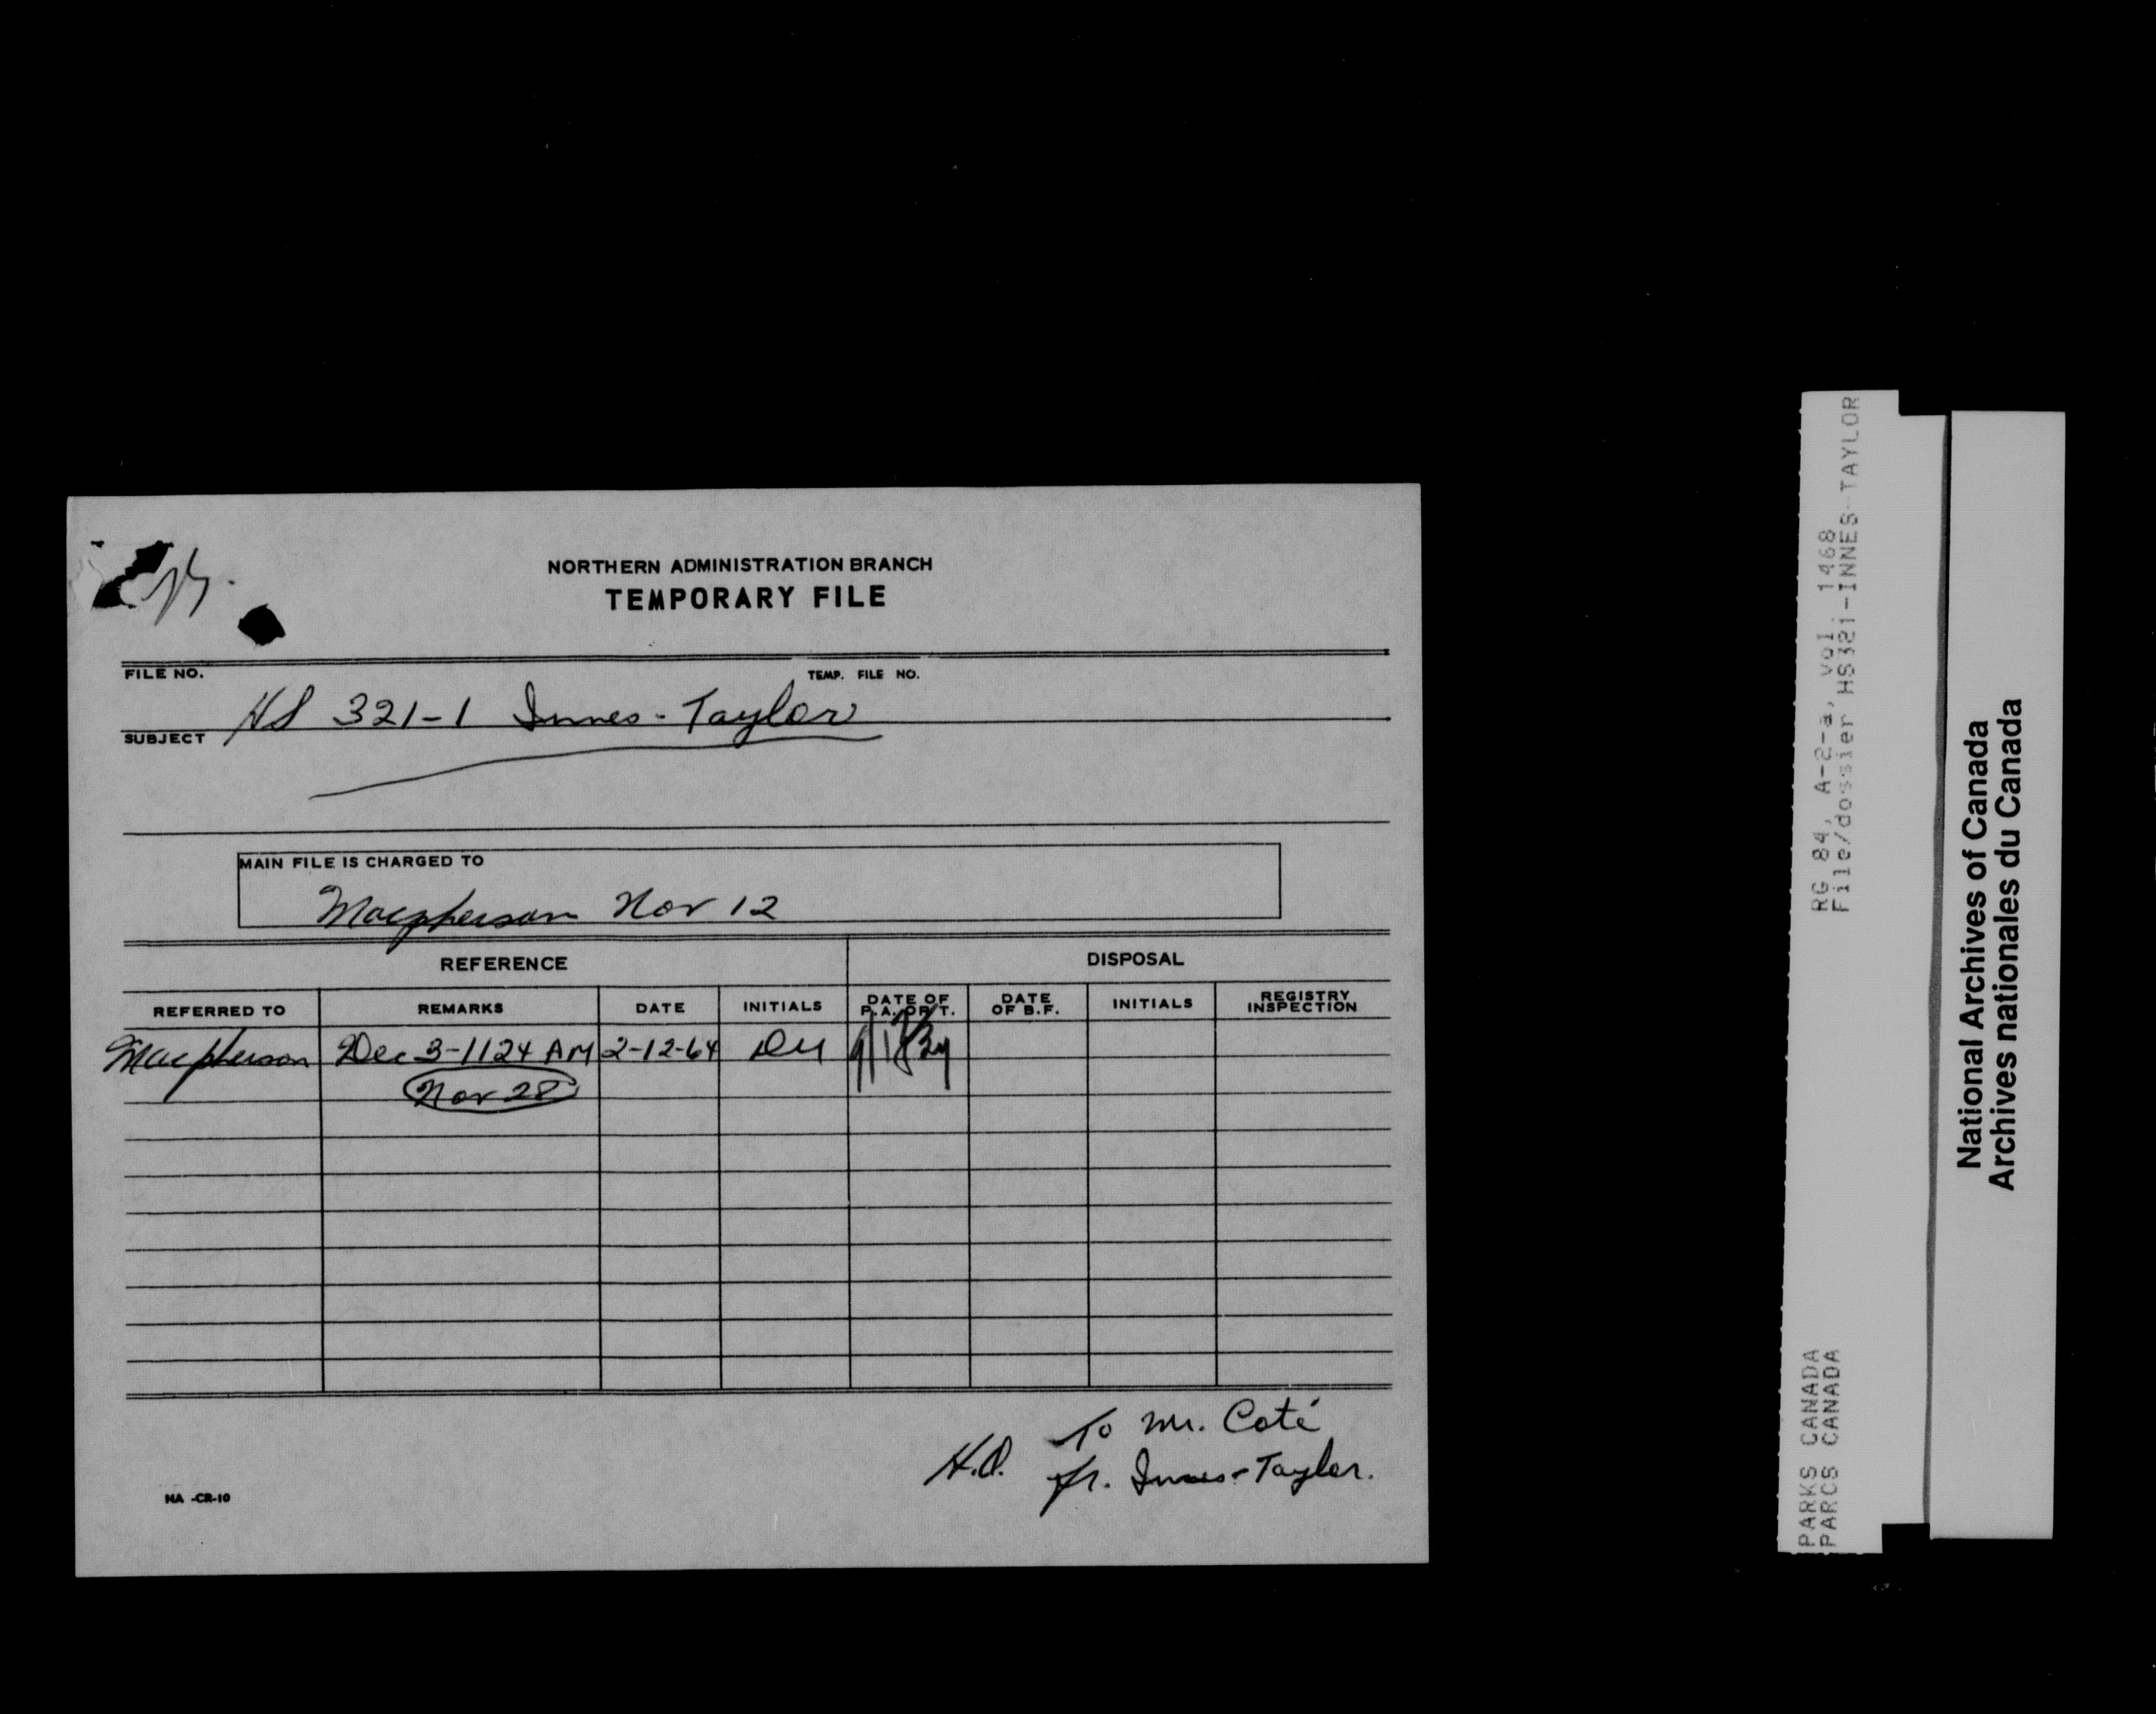 NORTHERN ADMINISTRATION BRANCH
TEMPORARY FILE
FILE NO.
TEMP. FILE NO.
HS 321-1 Innes-Taylor
SUBJECT
MAIN FILE IS CHARGED TO
Macpherson Nov 12
REFERENCE
DISPOSAL
REFERRED TO
REMARKS
DATE
INITIALS
DATE OF P.A. OR T.
DATE OF B.F.
INITIALS
REGISTRY INSPECTION
Macpherson Dec 3-1124 AM 2-12-64
Nov 28
To Mr. Coté
fr. Innes-Taylor.
NA -CR-10
RG 84, A-2-a, vol. 1468
File/dossier HS321-INNES-TAYLOR
PARKS CANADA
PARCS CANADA
National Archives of Canada
Archives nationales du Canada